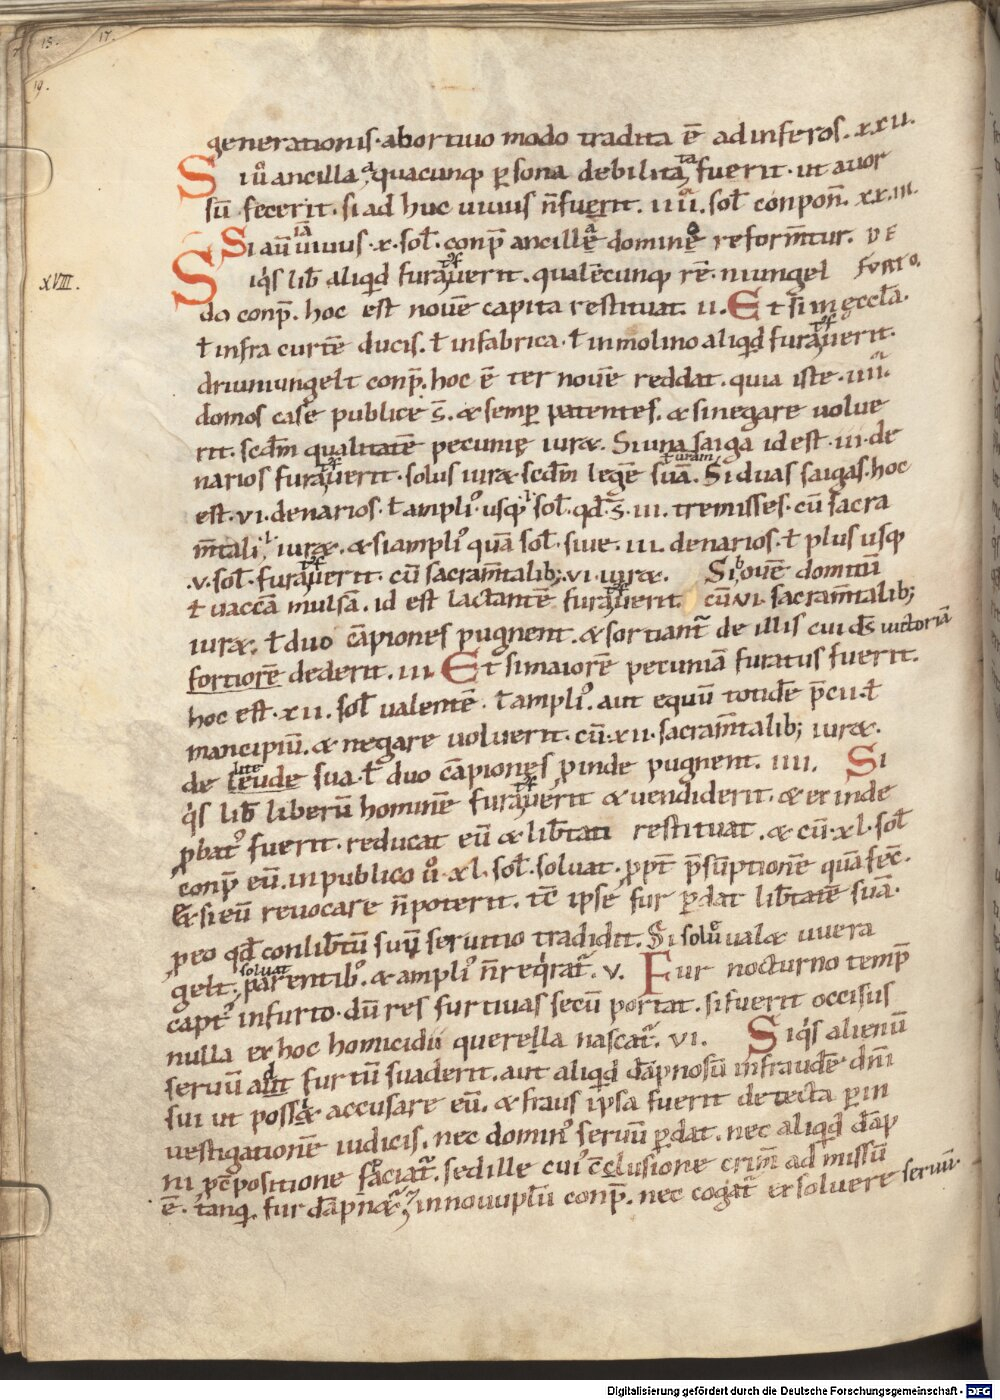 15. 17.
19.
generationis· abortiuo modo tradita ē ad inferos. xxii.
Si ů ancilla a quacunq; psona debilita ta fuerit· ut auor
sū fecerit. si ad huc uiuus n̄ fuerit. iiii. sol̄ conpon̄. xx.iii.
Si aū uiuus· x· sol̄· conp̄ ancillę dominę reform̄tur. DE
XVIII.
Siq's lib̄ aliqid furauerit. qualēcunq; rē· niungel FURTO.
do conp̄. hoc est nouē capita restituat. ii. Et si in ęccl̄a·
ł infra curtē ducis. ł in fabrica· ł in molino aliqid furauerit.
driuniungelt conp̄. hoc ē ter nouē reddat. quia iste· iiii·
domos case publice s̄. & semp patentes. & si negare uolue
rit. scdm̄ qualitatē pecunię iur&. Si una saiga id est· iii· de
narios furauerit· solus iur& scdm̄ legē suā. Si duas saigas· hoc
est· vi· denarios· ł ampli' usq; sol̄· qd̄ s̄· iii· tremisses· cū sacra
m̄tali iur&. & si ampli' quā sol̄· siue· iii· denarios· ł plus usq;
·v· sol̄· furauerit. cū sacram̄talib; vi· iur&. Si bouē domitū
ł uaccā mulsā. id est lactantē furauerit. cū vi· sacram̄talib;
iur&· ł duo cāpiones pugnent. & sortiant' de illis cui ds̄ uictoriā
fortiorē dederit. iii. Et si maiorē pecuniā furatus fuerit.
hoc est· xii· sol̄ ualentē· ł ampli'. aut equū totidē p̄cii· ł
mancipiū. & negare uoluerit· cū· xii· sacram̄talib; iur&.
lite
de leude sua· ł duo cāpiones pinde pugnent. iiii. Si
q's lib̄ liberū hominē furauerit & uendiderit. & exinde
pbat' fuerit· reducat eū & lib̄tati restituat. & cū· xl· sol̄
conp̄ eū. in publico ů· xl· sol̄· soluat· ppt̄ p̄sūptionē quā fec̄·
& si eū reuocare n̄ poterit. tc̄ ipse fur pdat lib̄tatē suā·
p eo qd̄ conlib̄tū suū seruitio tradidit. Si solū ual& uuera
soluat
gelt. parentib'. & ampli' n̄ req'rat'. v. Fur nocturno temp̄
capt' in furto· dū res furtiuas secū portat. si fuerit occisus
nulla ex hoc homicidii querella nascat'. vi. Si q's alienū
seruū ad furtū suaderit. aut aliqid dāpnosū in fraudē dn̄i
sui ut possit accusare eū. & fraus ipsa fuerit detecta p in
uestigationē iudicis. nec domin' seruū pdat. nec aliqid dāp
ni pc̄positione faciat'. sed ille cui' c̄clusione crim̄ ad missū
ē. tanq; fur dāpn&'. in nouuplū conp̄. nec cogat' exsoluere seruū·
Digitalisierung gefördert durch die Deutsche Forschungsgemeinschaft - DFG